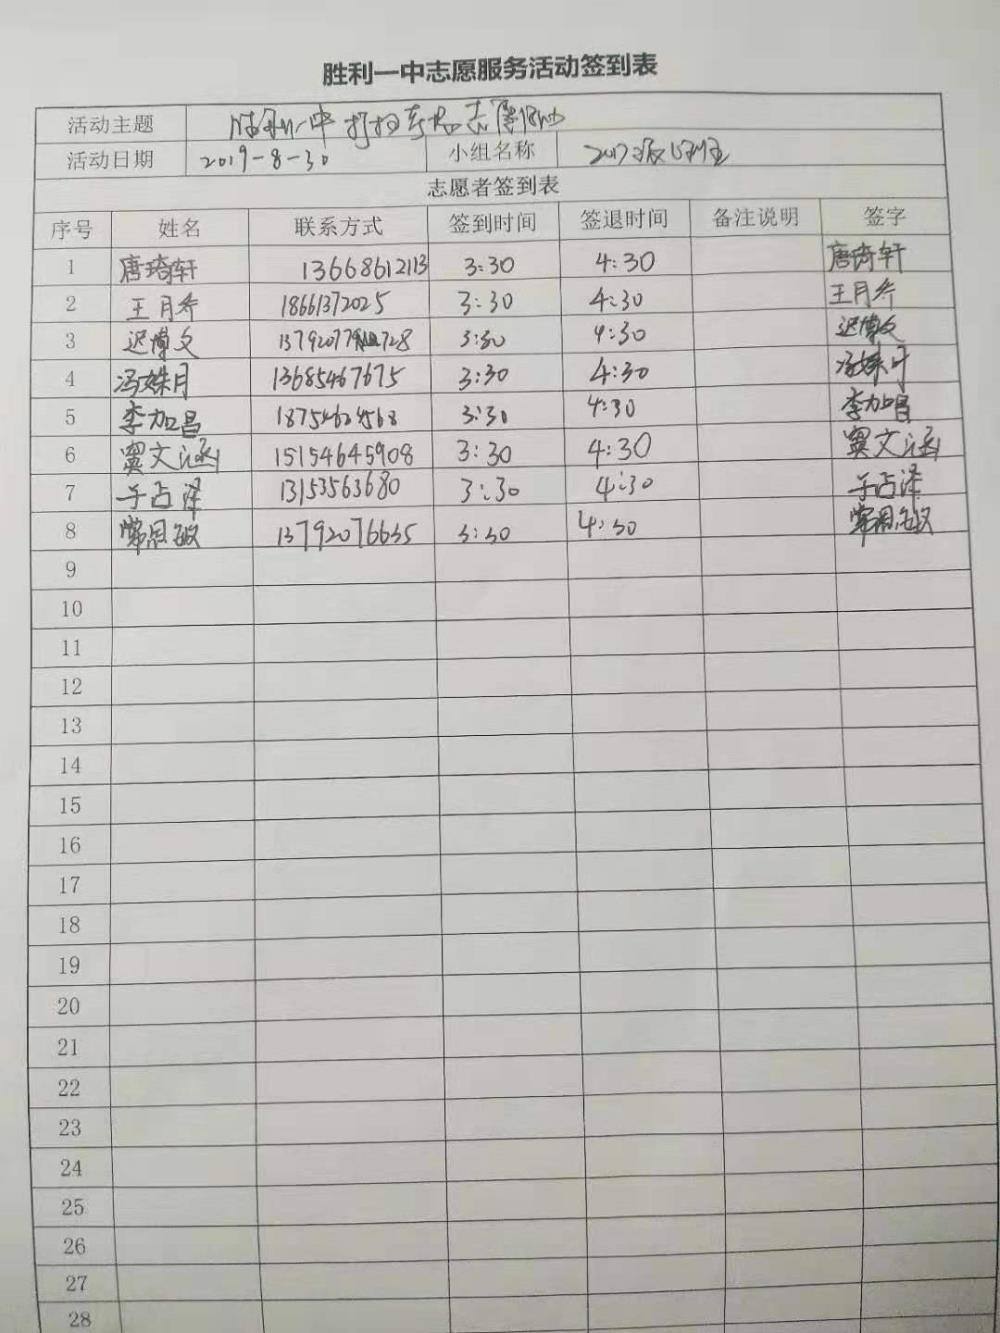 胜利一中志愿服务活动签到表
活动主题 胜利一中打扫考场志愿活动
活动日期 2019-8-30 小组名称 2017级
志愿者签到表
序号 姓名 联系方式 签到时间 签退时间 备注说明 签字
1 唐琦轩 13668612113 3:30 4:30 唐琦轩
2 王月乔 18661372025 3:30 4:30 王月乔
3 迟博文 3:30 4:30 迟博文
4 冯姝月 13685467675 3:30 4:30 冯姝月
5 李加昌 18754624568 3:30 4:30 李加昌
6 窦文涵 15154645908 3:30 4:30 窦文涵
7 于占泽 13153563680 3:30 4:30 于占泽
8 常恩敏 13792076635 3:30 4:30 常恩敏
9
10
11
12
13
14
15
16
17
18
19
20
21
22
23
24
25
26
27
28